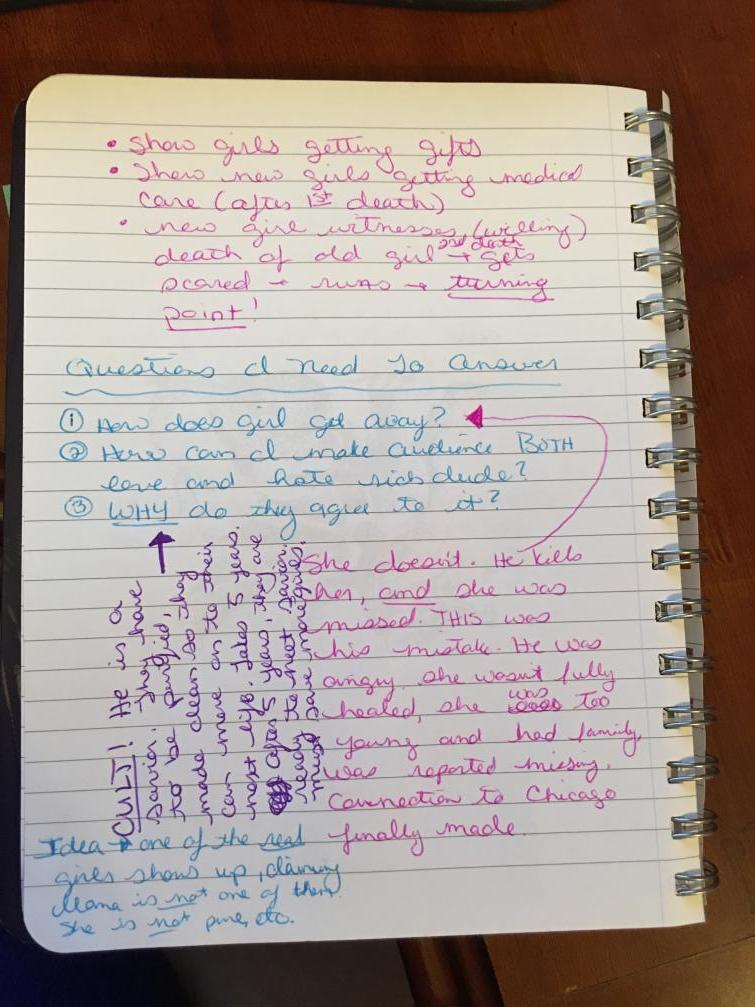 • Show girls getting gifts
• Show new girls getting medical
care (after 1st death)
• new girl witnesses (willing)
2nd death
death of old girl → gets
scared → runs → turning
point!
Questions I need to answer
① How does girl get away?
② How can I make audience BOTH
love and hate rich dude?
③ WHY do they agree to it?
CULT! He is a
savior. They have
to be purified,
made clean so they
can move on to their
next life. Takes 5 years.
After 5 years, they are
ready to meet savior.
must save more girls.
She doesn't. He kills
her, and she was
missed. THIS was
his mistake. He was
angry she wasn't fully
healed, she was TOO
young and had family,
was reported missing.
Connection to Chicago
finally made.
Idea → one of the real
girls shows up, claiming
Mama is not one of them.
She is not pure, etc.